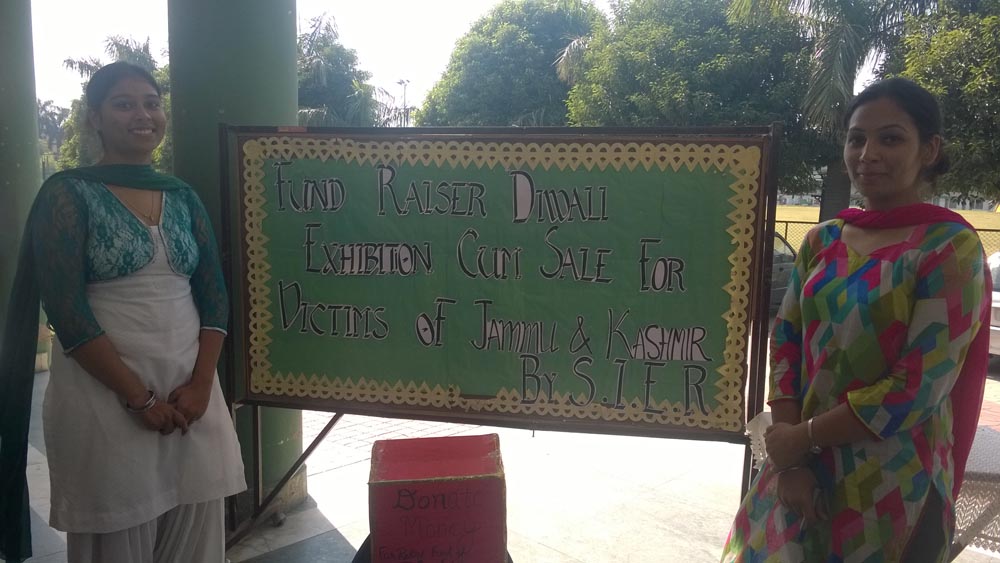 Fund Raiser Diwali
Exhibition Cum Sale For
Victims of Jammu & Kashmir
By S.I.E.R
Donate
Money